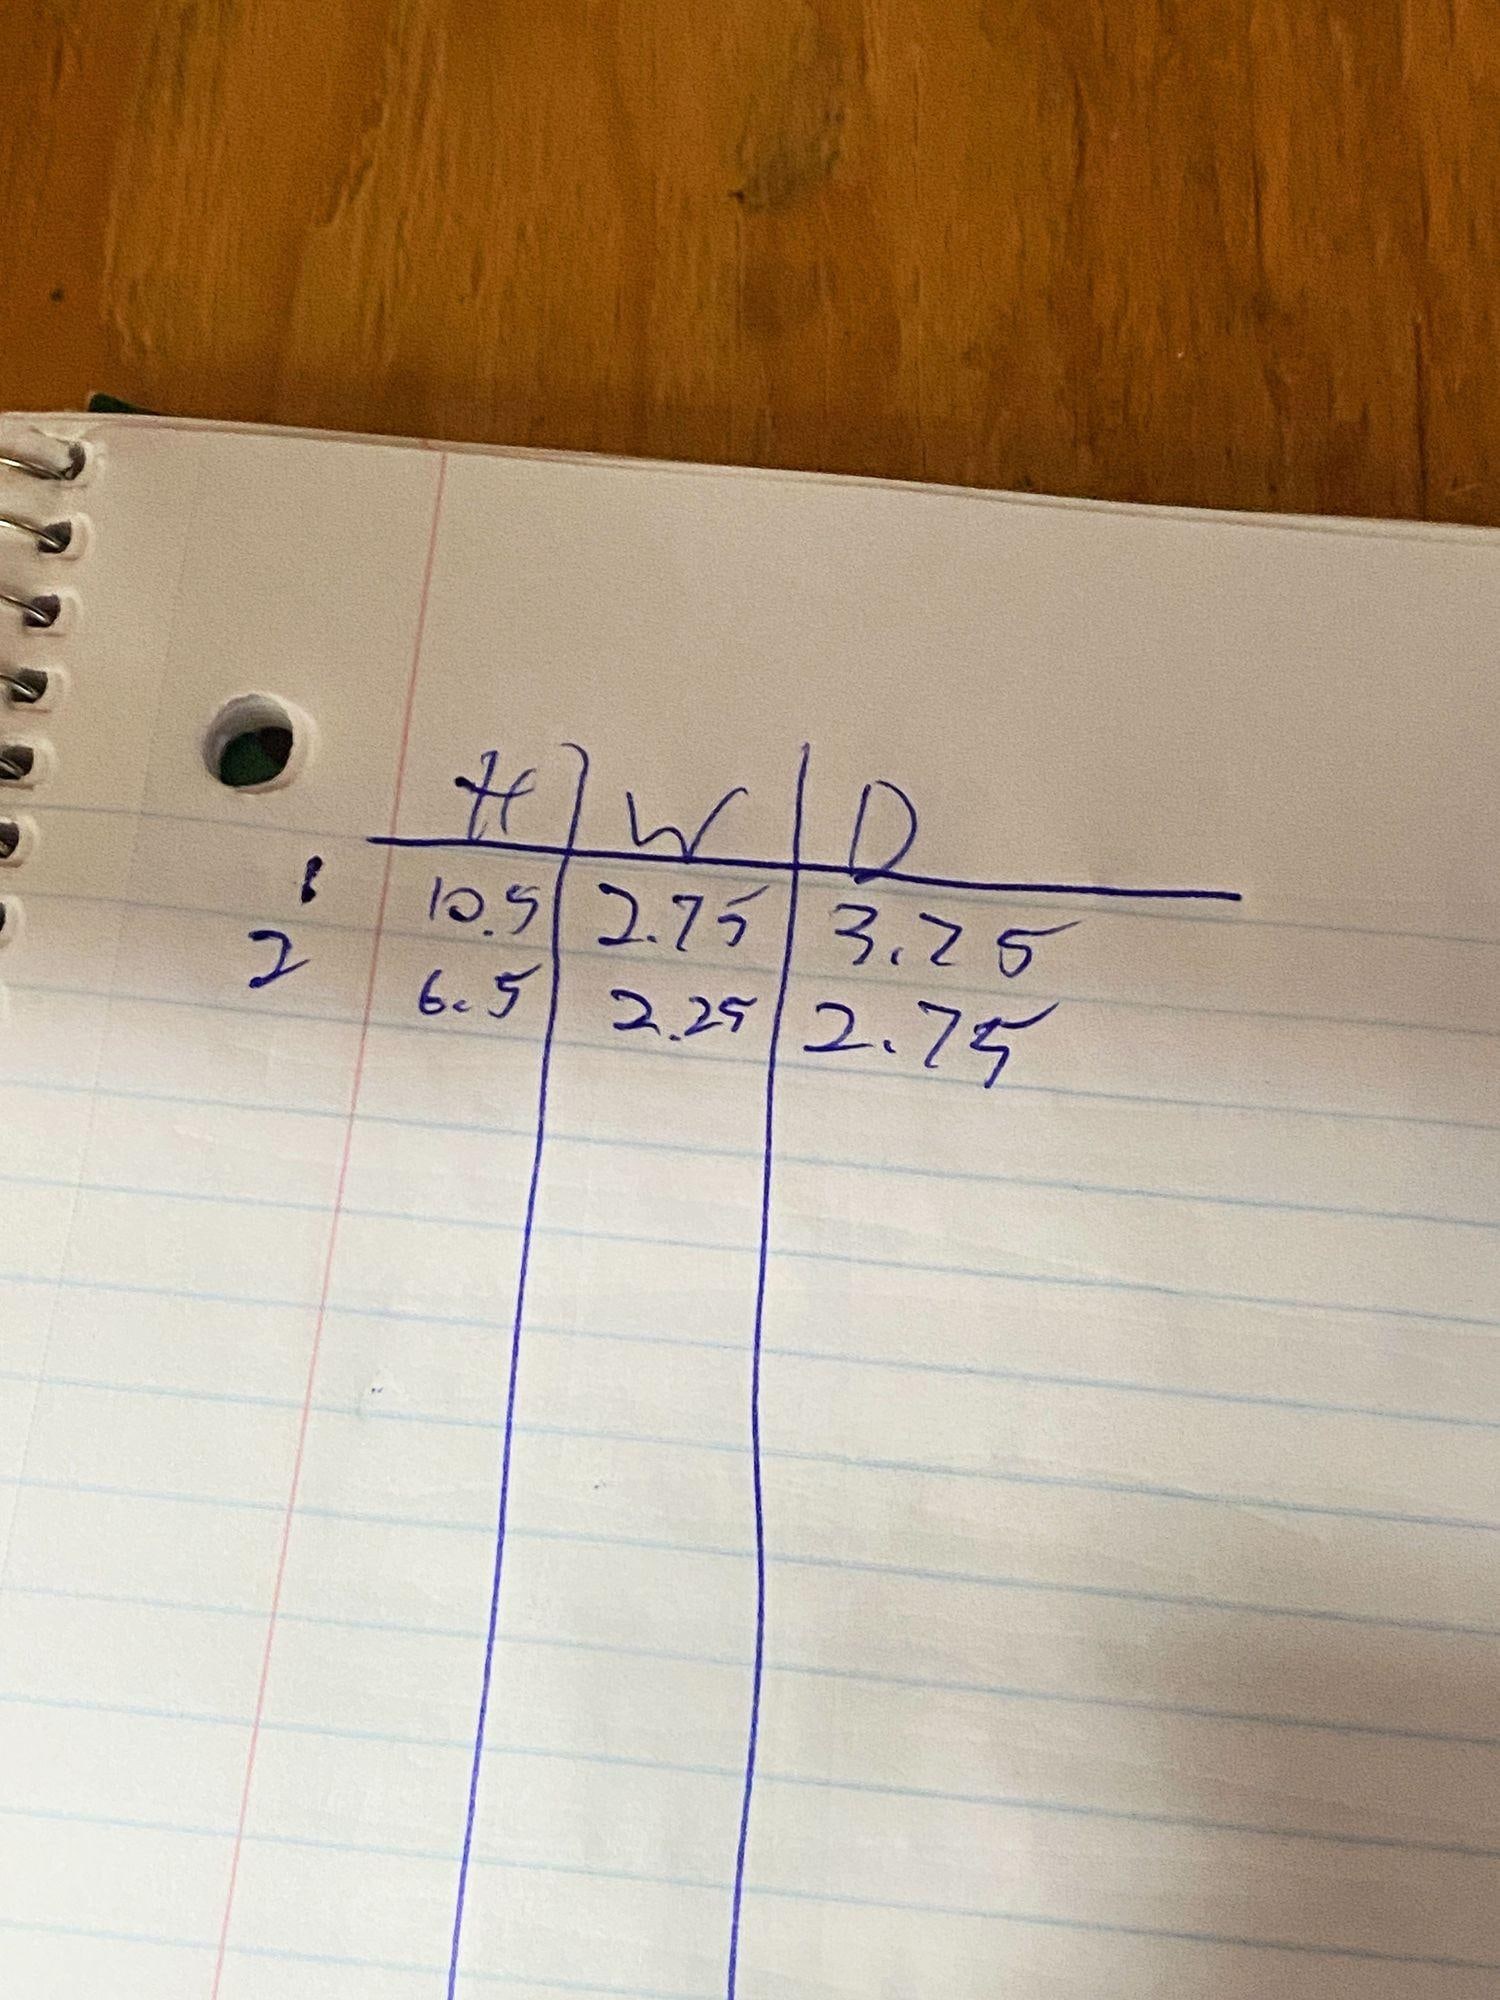 H W D
1 10.5 2.75 3.25
2 6.5 2.25 2.75